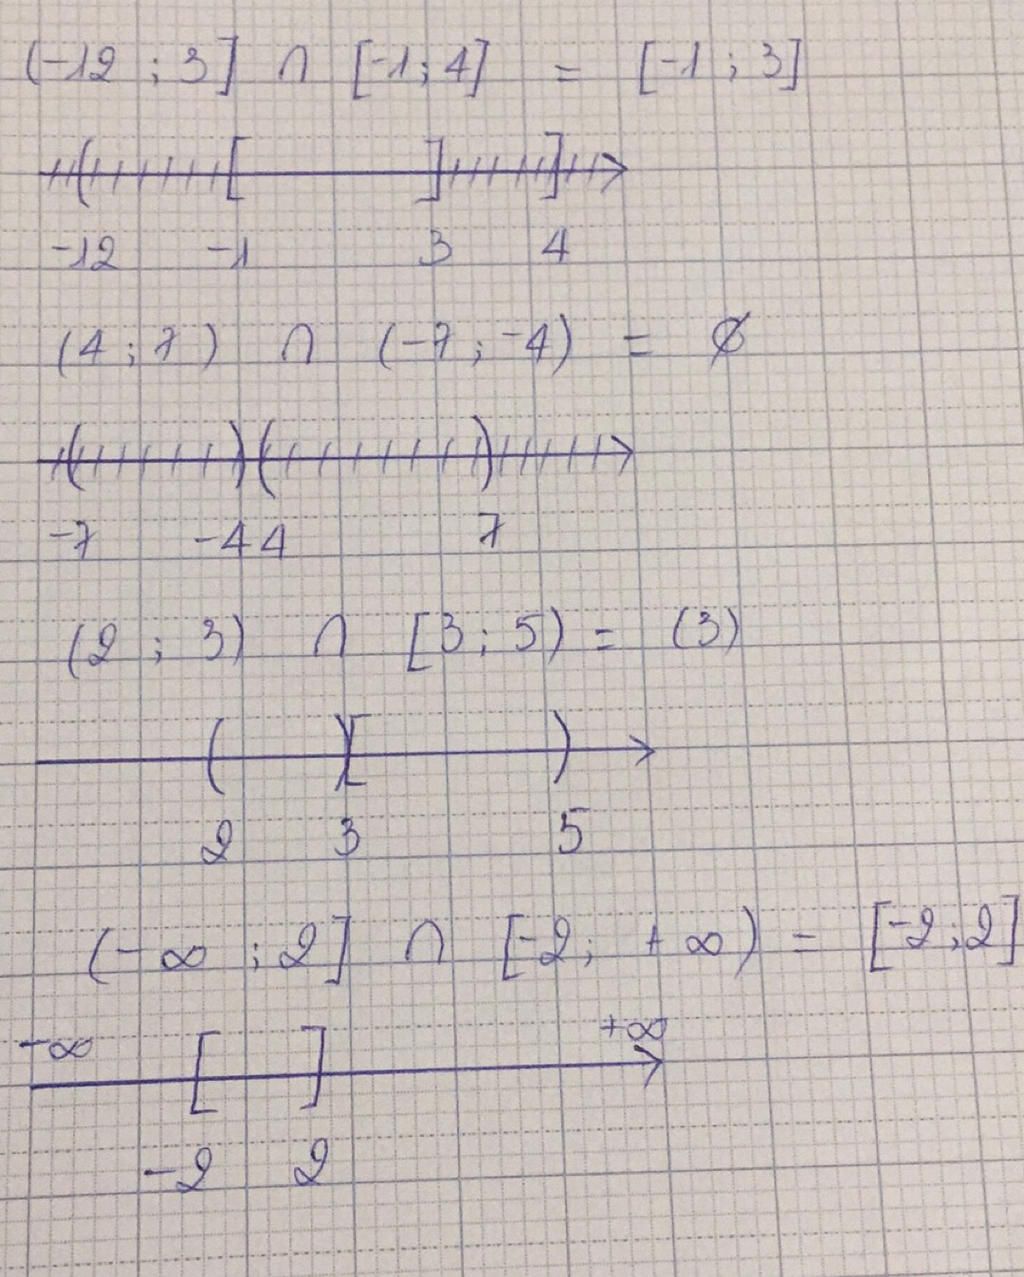 (-12 ; 3] ∩ [-1 ; 4] = [-1 ; 3]
-12 -1 3 4
(4 ; 7) ∩ (-7 ; -4) = ∅
-7 -4 4 7
(2 ; 3) ∩ [3 ; 5) = (3)
2 3 5
(-∞ ; 2] ∩ [-2 ; +∞) = [-2 ; 2]
-∞ +∞
-2 2